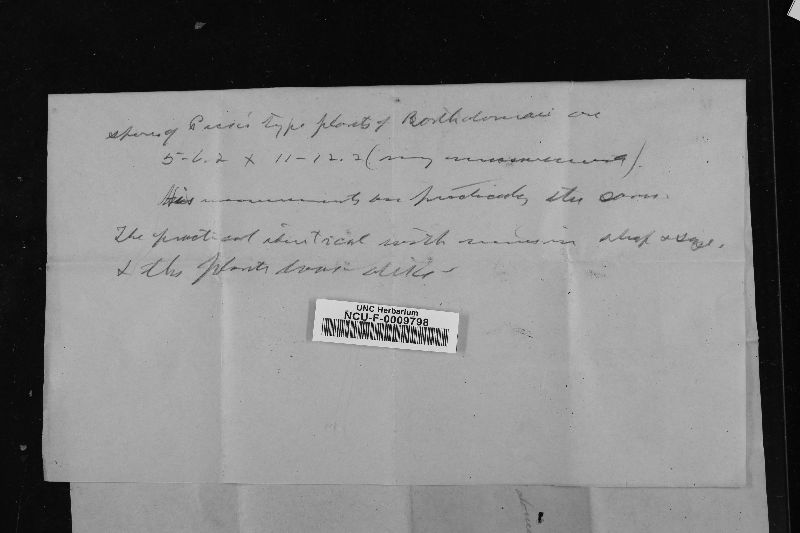 spores of type plants of Bartholomaei are
5-6.2 x 11-12.2 (my measurements).
His measurements are practically the same.
The practical identical with in shape & size.
& the plants look alike -
UNC Herbarium
NCU-F-0009798